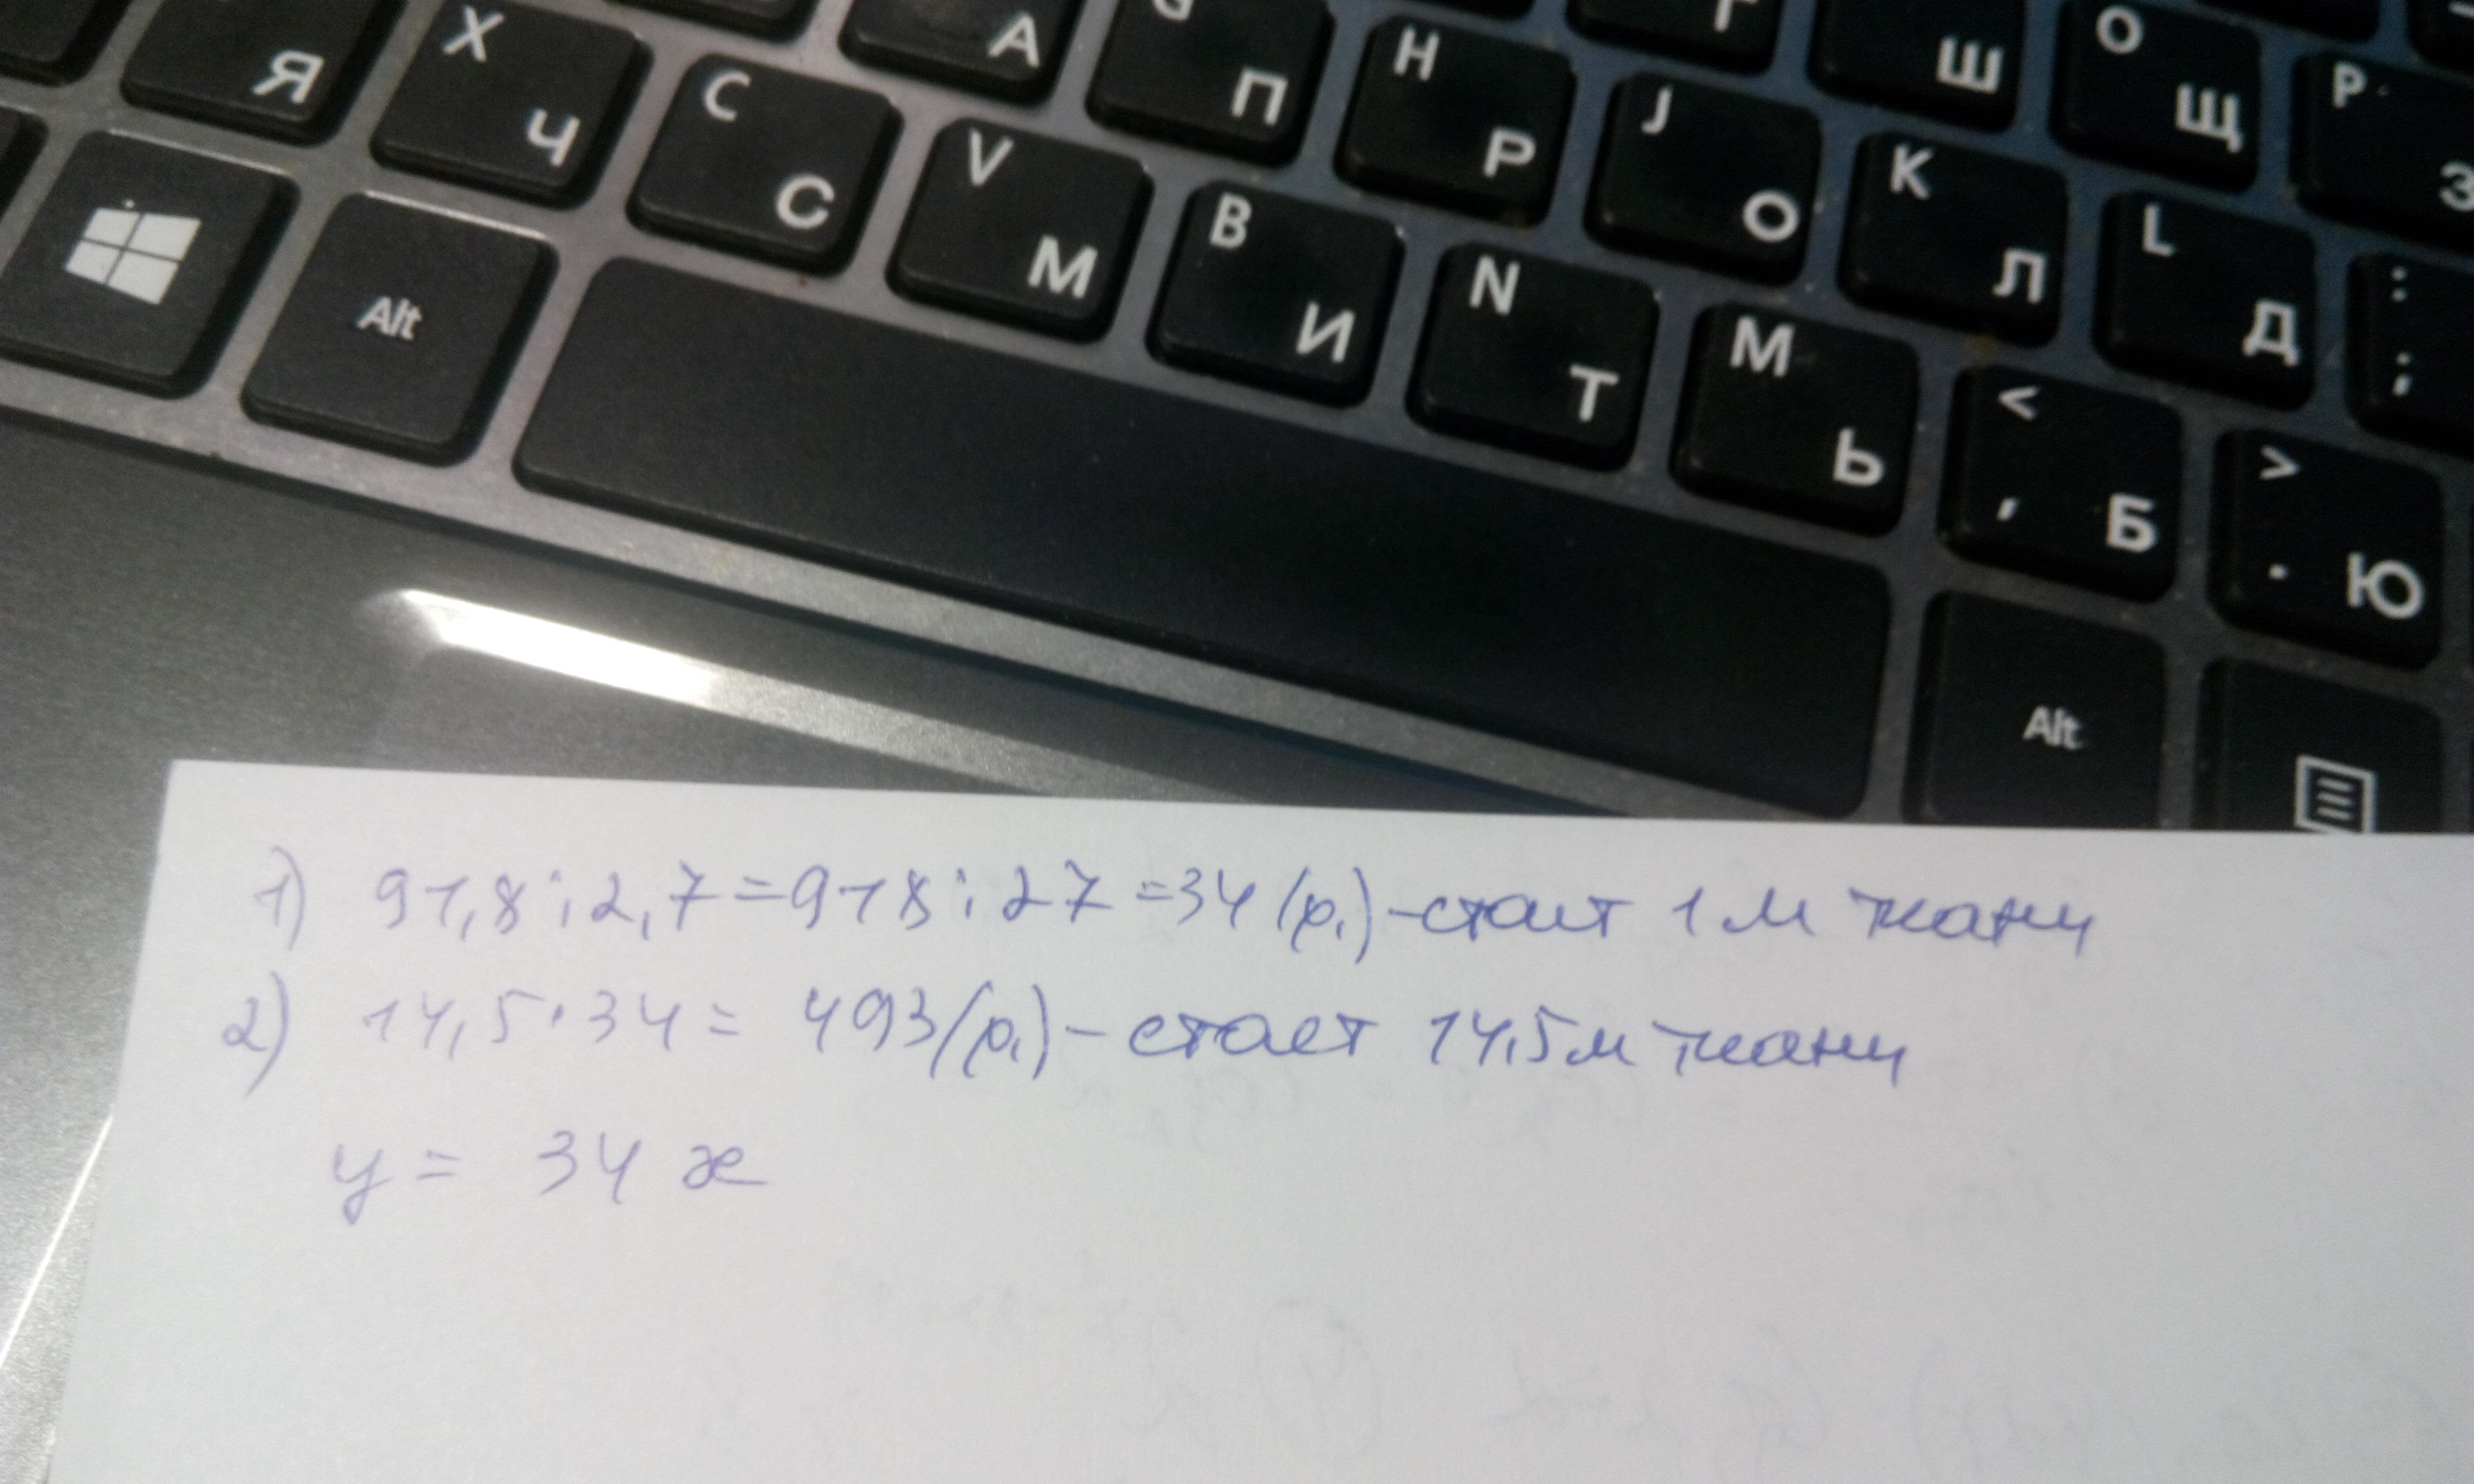 G Г O P
Я X Ч C С A П H Р J О Ш Щ З
Alt V М B И N Т K Л L Д : ;
M Ь < , Б > . Ю
Alt
1) 91,8 : 2,7 = 918 : 27 = 34 (р.) - стоит 1 м ткани
2) 14,5 · 34 = 493 (р.) - стоет 14,5 м ткани
y = 34 x